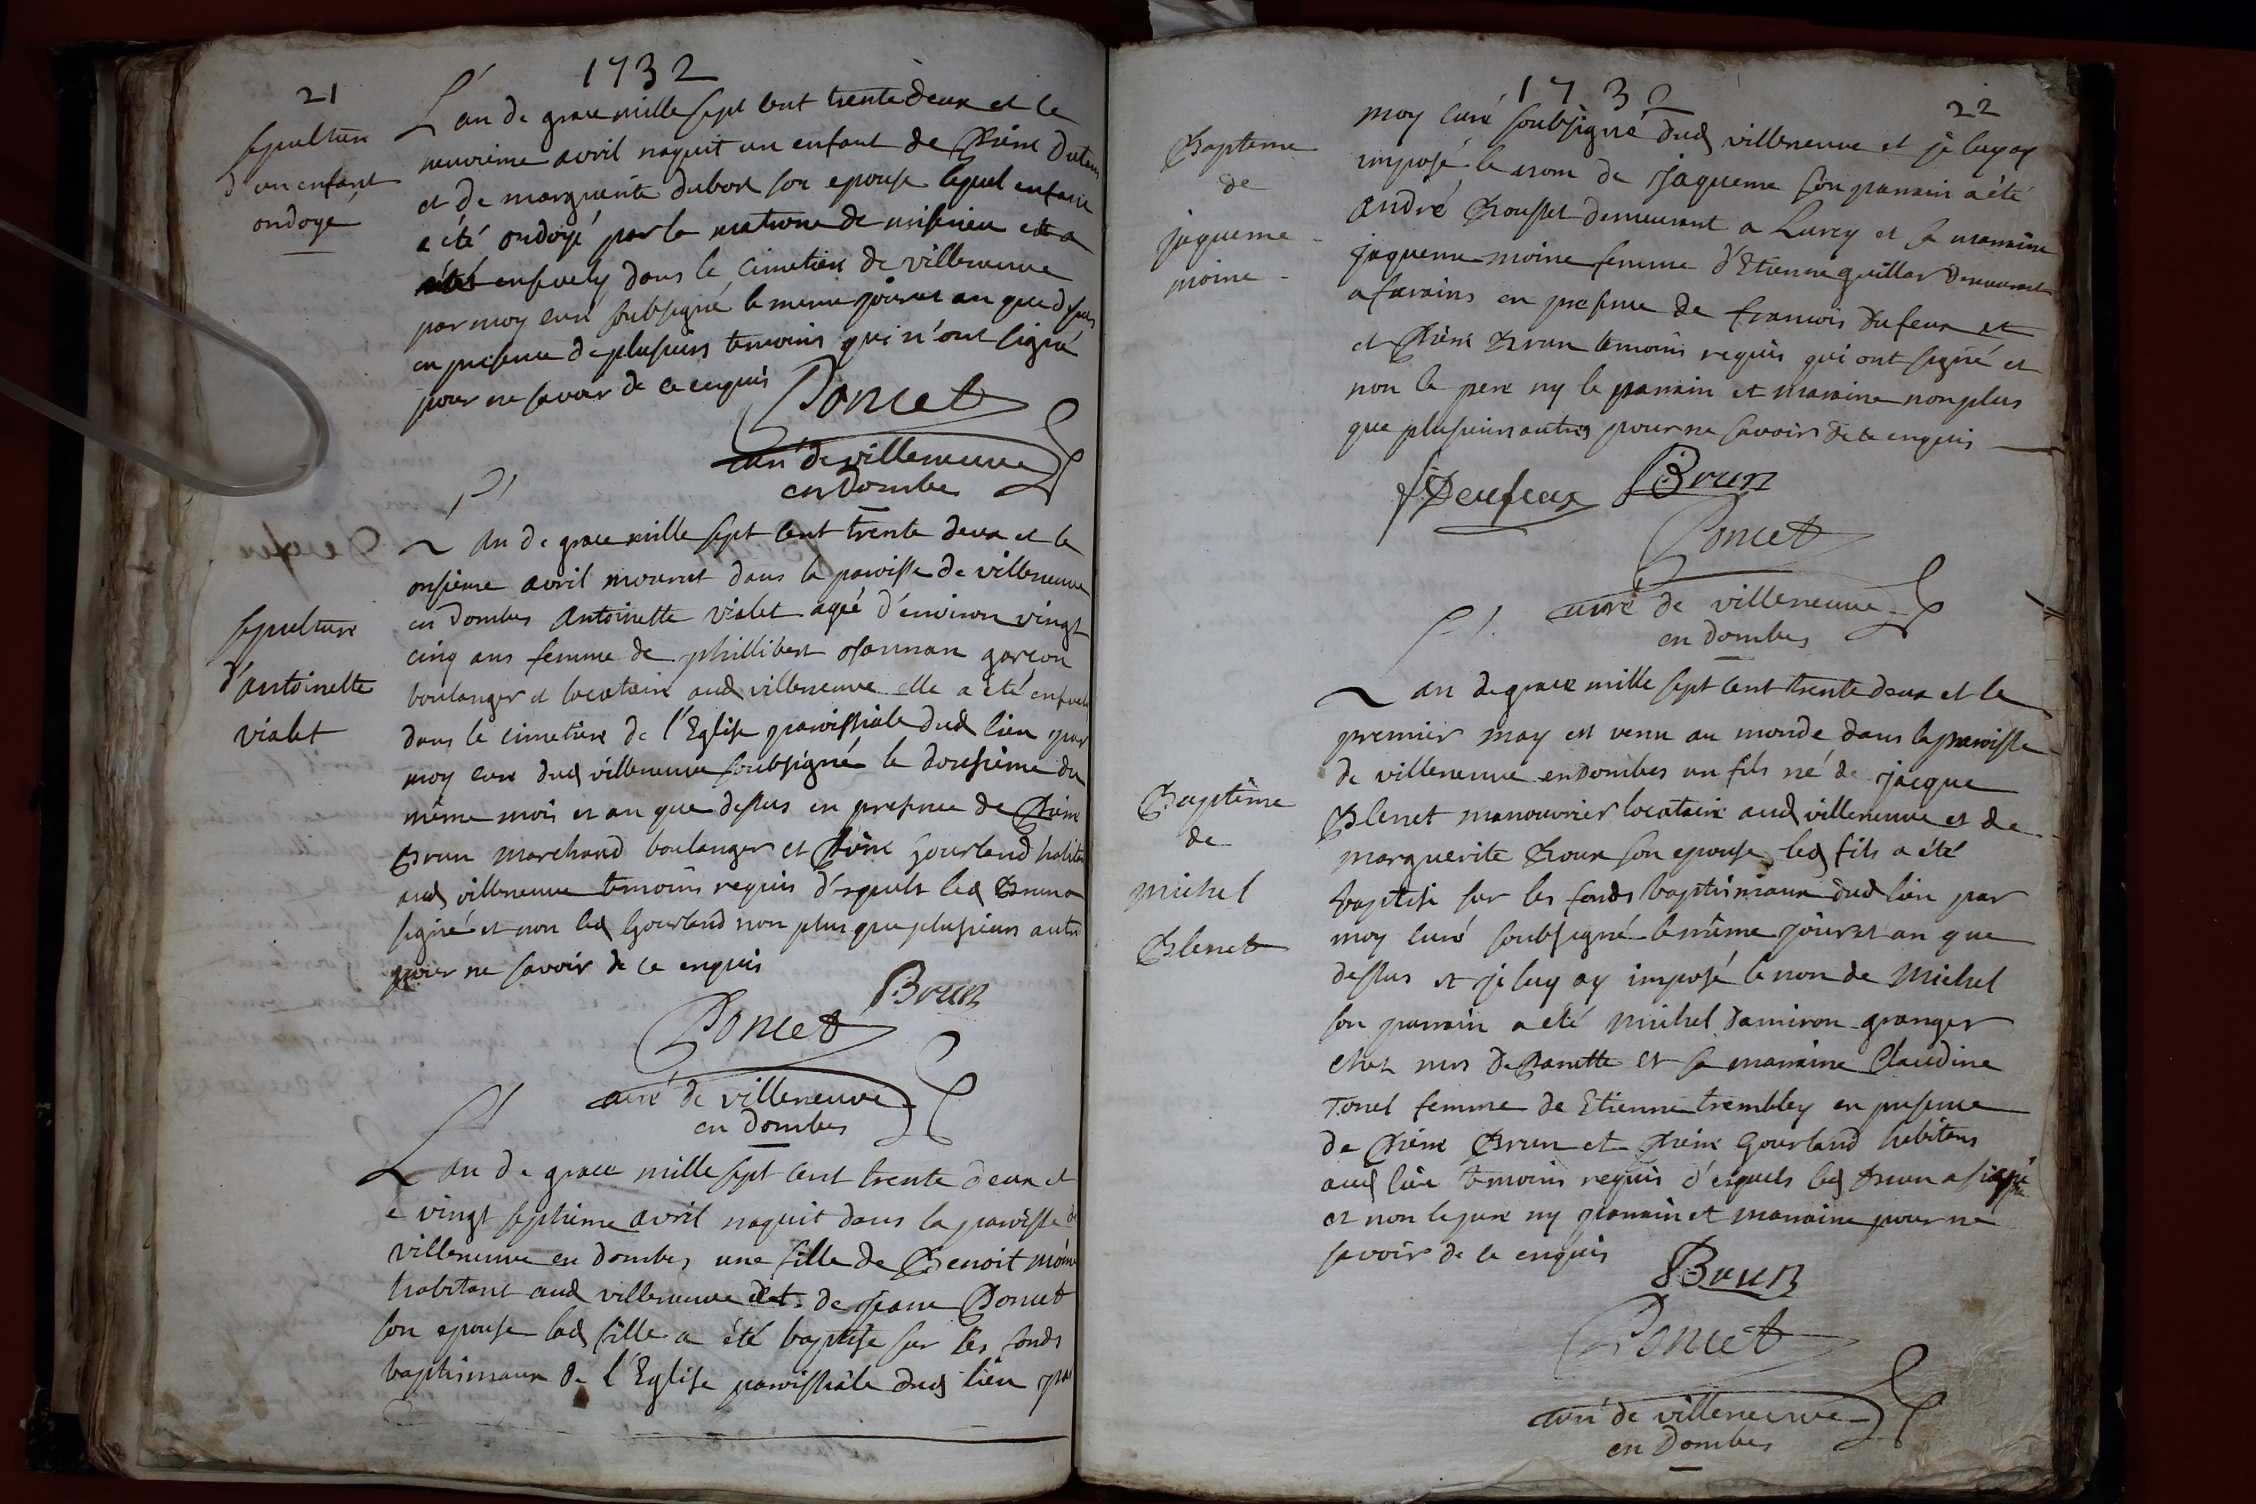 1732
21
Sepulture
d'un enfant
ondoyé
L'an de grace mille sept cent trente deux et le
neuvième avril naquit un enfant de Pièrre
et de marguerite dubost son epouse lequel enfant
a été ondoyé par la matrone de et a
été ensevely dans le cimetiere de villeneuve
par moy curé soubsigné le meme jour et an que dessus
en presence de plusieurs temoins qui n'ont signé
pour ne savoir de ce enquis
Poncet
curé de villeneuve
en Dombes
Sepulture
d'antoinette
vialet
L'an de grace mille sept cent trente deux et le
onsième avril mourut dans la paroisse de villeneuve
en Dombes Antoinette vialet agé d'environ vingt
cinq ans femme de phillibert garcon
boulanger et locataire aud villeneuve elle a été ensevely
dans le cimetiere de l'Eglise paroissiale dud lieu par
moy curé dud villeneuve soubsigné le dousième du
même mois et an que dessus en presence de Pièrre
Brun marchand boulanger et Pièrre Gourland habitans
aud villeneuve temoins requis d'esquels led Brun a
signé et non led Gourland non plus que plusieurs autres
pour ne savoir de ce enquis
Brun
Poncet
curé de villeneuve
en Dombes
L'an de grace mille sept cent trente deux et
le vingt septième avril naquit dans la paroisse de
villeneuve en dombes une fille de Benoit moine
habitant aud villeneuve et de Jeane Poncet
son epouse lad fille a été baptisé sur les fonds
baptismaux de l'Eglise paroissiale dud lieu par
1732
22
Bapteme
de
jaqueme
moine
moy curé soubsigné dud villeneuve et je luy ay
imposé le nom de Jaqueme son parrain a été
André Rousset demeurant a Lurcy et sa marraine
jaqueme moine femme d'Etienne guillar demeurant
a farains en presence de francois Dufeux et
et Pièrre Brun temoins requis qui ont signé et
non le pere ny le parrain et maraine non plus
que plusieurs autres pour ne savoir de ce enquis
f Deufeux Brun
Poncet
curé de villeneuve
en Dombes
Baptême
de
michel
Blenet
L'an de grace mille sept cent trente deux et le
premier may est venu au monde dans la paroisse
de villeneuve en Dombes un fils né de jacque
Blenet manouvrier locataire aud villeneuve et de
marguerite Roux son epouse led fils a été
baptisé sur les fonds baptismaux dud lieu par
moy curé soubsigné le même jour et an que
dessus et je luy ay imposé le nom de Michel
son parrain a été michel Damiron granger
chez mrs de et sa marraine Claudine
Tonel femme de Etienne trembley en presence
de Pièrre Brun et Pièrre Gourland habitans
aud lieu temoins requis d'esquels led Brun a signé
et non le pere ny parrain et marraine pour ne
savoir de ce enquis
Brun
Poncet
curé de villeneuve
en Dombes